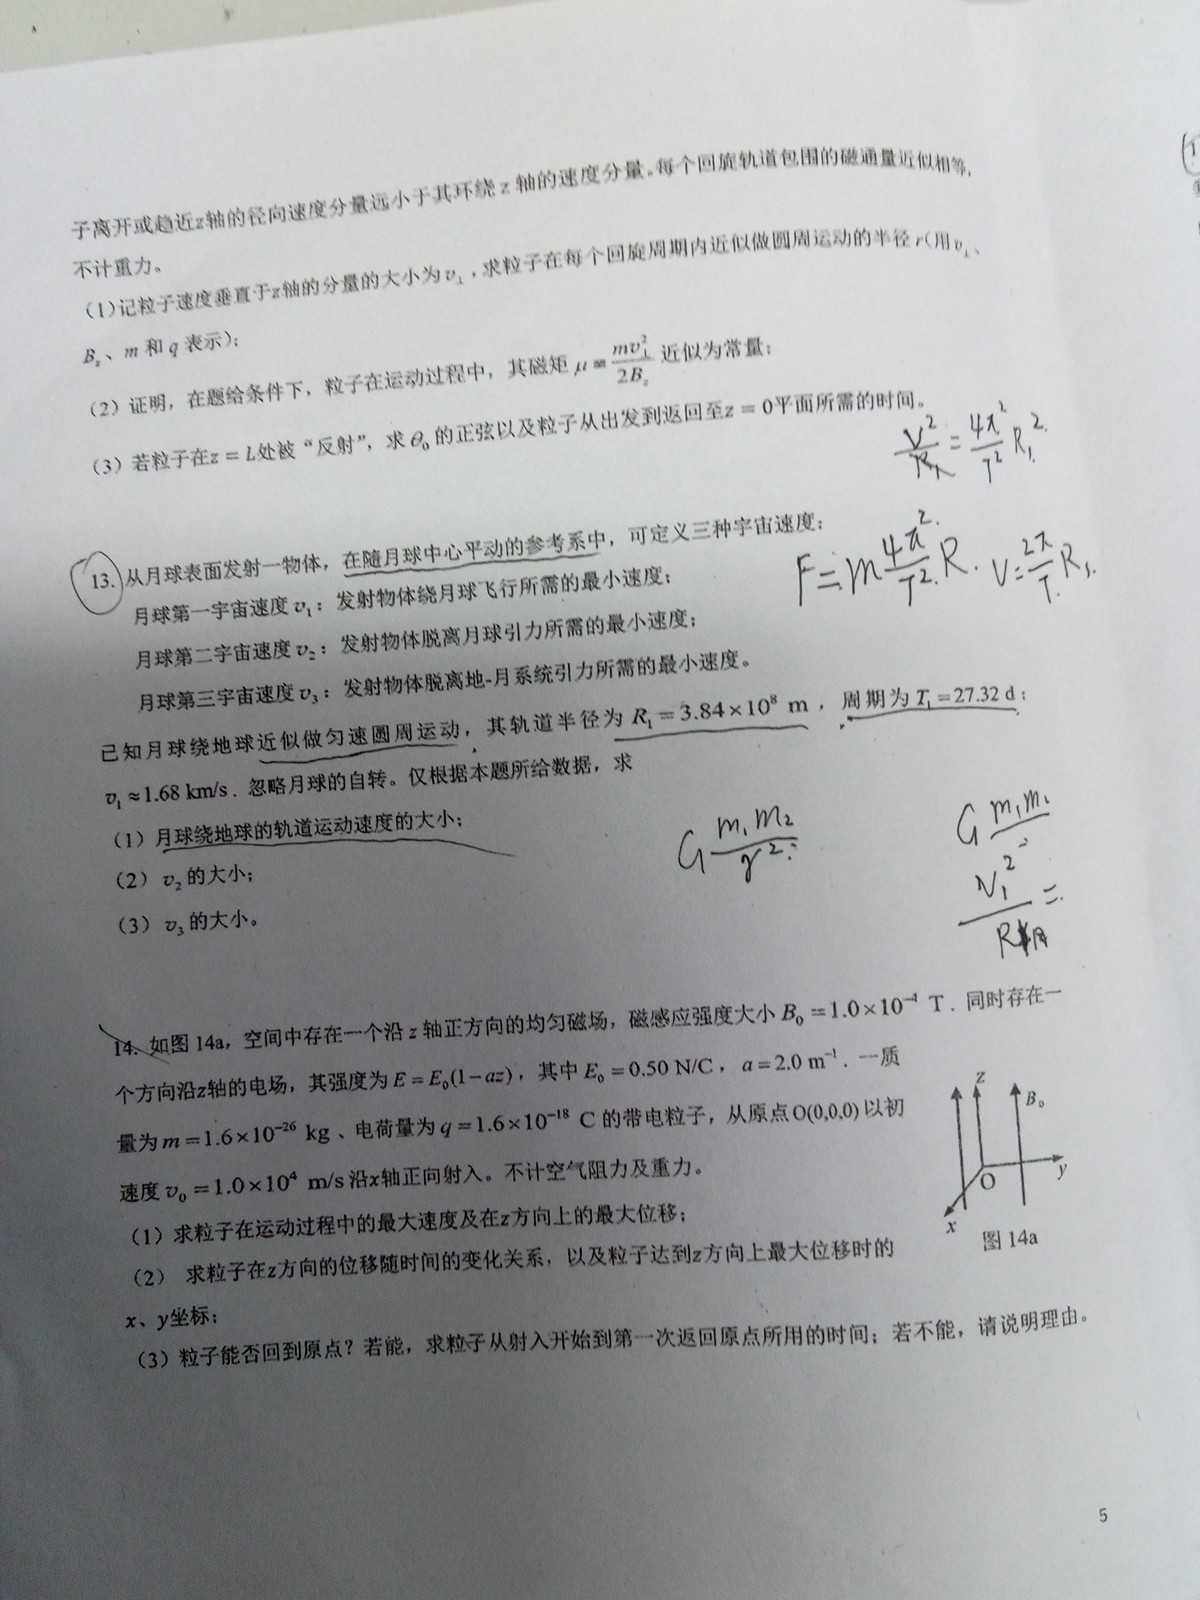 子离开或趋近z轴的径向速度分量远小于其环绕 z 轴的速度分量。每个回旋轨道包围的磁通量近似相等,
不计重力。
(1)记粒子速度垂直于z轴的分量的大小为 v⊥ , 求粒子在每个回旋周期内近似做圆周运动的半径 r(用 v⊥、
B_z、m 和 q 表示);
(2) 证明, 在题给条件下, 粒子在运动过程中, 其磁矩 μ = mv⊥²/2B_z 近似为常量;
(3) 若粒子在z = L处被“反射”, 求 θ₀ 的正弦以及粒子从出发到返回至z = 0平面所需的时间。
V²/R₁ = 4π²/T² R₁².
13. 从月球表面发射一物体, 在随月球中心平动的参考系中, 可定义三种宇宙速度:
F = m 4π²/T² R. V = 2π/T R₁.
月球第一宇宙速度 v₁: 发射物体绕月球飞行所需的最小速度;
月球第二宇宙速度 v₂: 发射物体脱离月球引力所需的最小速度;
月球第三宇宙速度 v₃: 发射物体脱离地-月系统引力所需的最小速度。
已知月球绕地球近似做匀速圆周运动, 其轨道半径为 R₁ = 3.84×10⁸ m , 周期为 T₁ = 27.32 d;
v₁ ≈ 1.68 km/s . 忽略月球的自转。仅根据本题所给数据, 求
(1) 月球绕地球的轨道运动速度的大小;
(2) v₂ 的大小;
(3) v₃ 的大小。
G m₁m₂/r²
G m₁m₁
V₁²/R月 =
14. 如图 14a, 空间中存在一个沿 z 轴正方向的均匀磁场, 磁感应强度大小 B₀ = 1.0×10⁻⁴ T . 同时存在一
个方向沿z轴的电场, 其强度为 E = E₀(1−az) , 其中 E₀ = 0.50 N/C , a = 2.0 m⁻¹ . 一质
量为 m = 1.6×10⁻²⁶ kg 、电荷量为 q = 1.6×10⁻¹⁸ C 的带电粒子, 从原点 O(0,0,0) 以初
速度 v₀ = 1.0×10⁴ m/s 沿x轴正向射入。不计空气阻力及重力。
(1) 求粒子在运动过程中的最大速度及在z方向上的最大位移;
(2) 求粒子在z方向的位移随时间的变化关系, 以及粒子达到z方向上最大位移时的
x、y坐标;
(3) 粒子能否回到原点? 若能, 求粒子从射入开始到第一次返回原点所用的时间; 若不能, 请说明理由。
z
B₀
y
O
x
图 14a
5